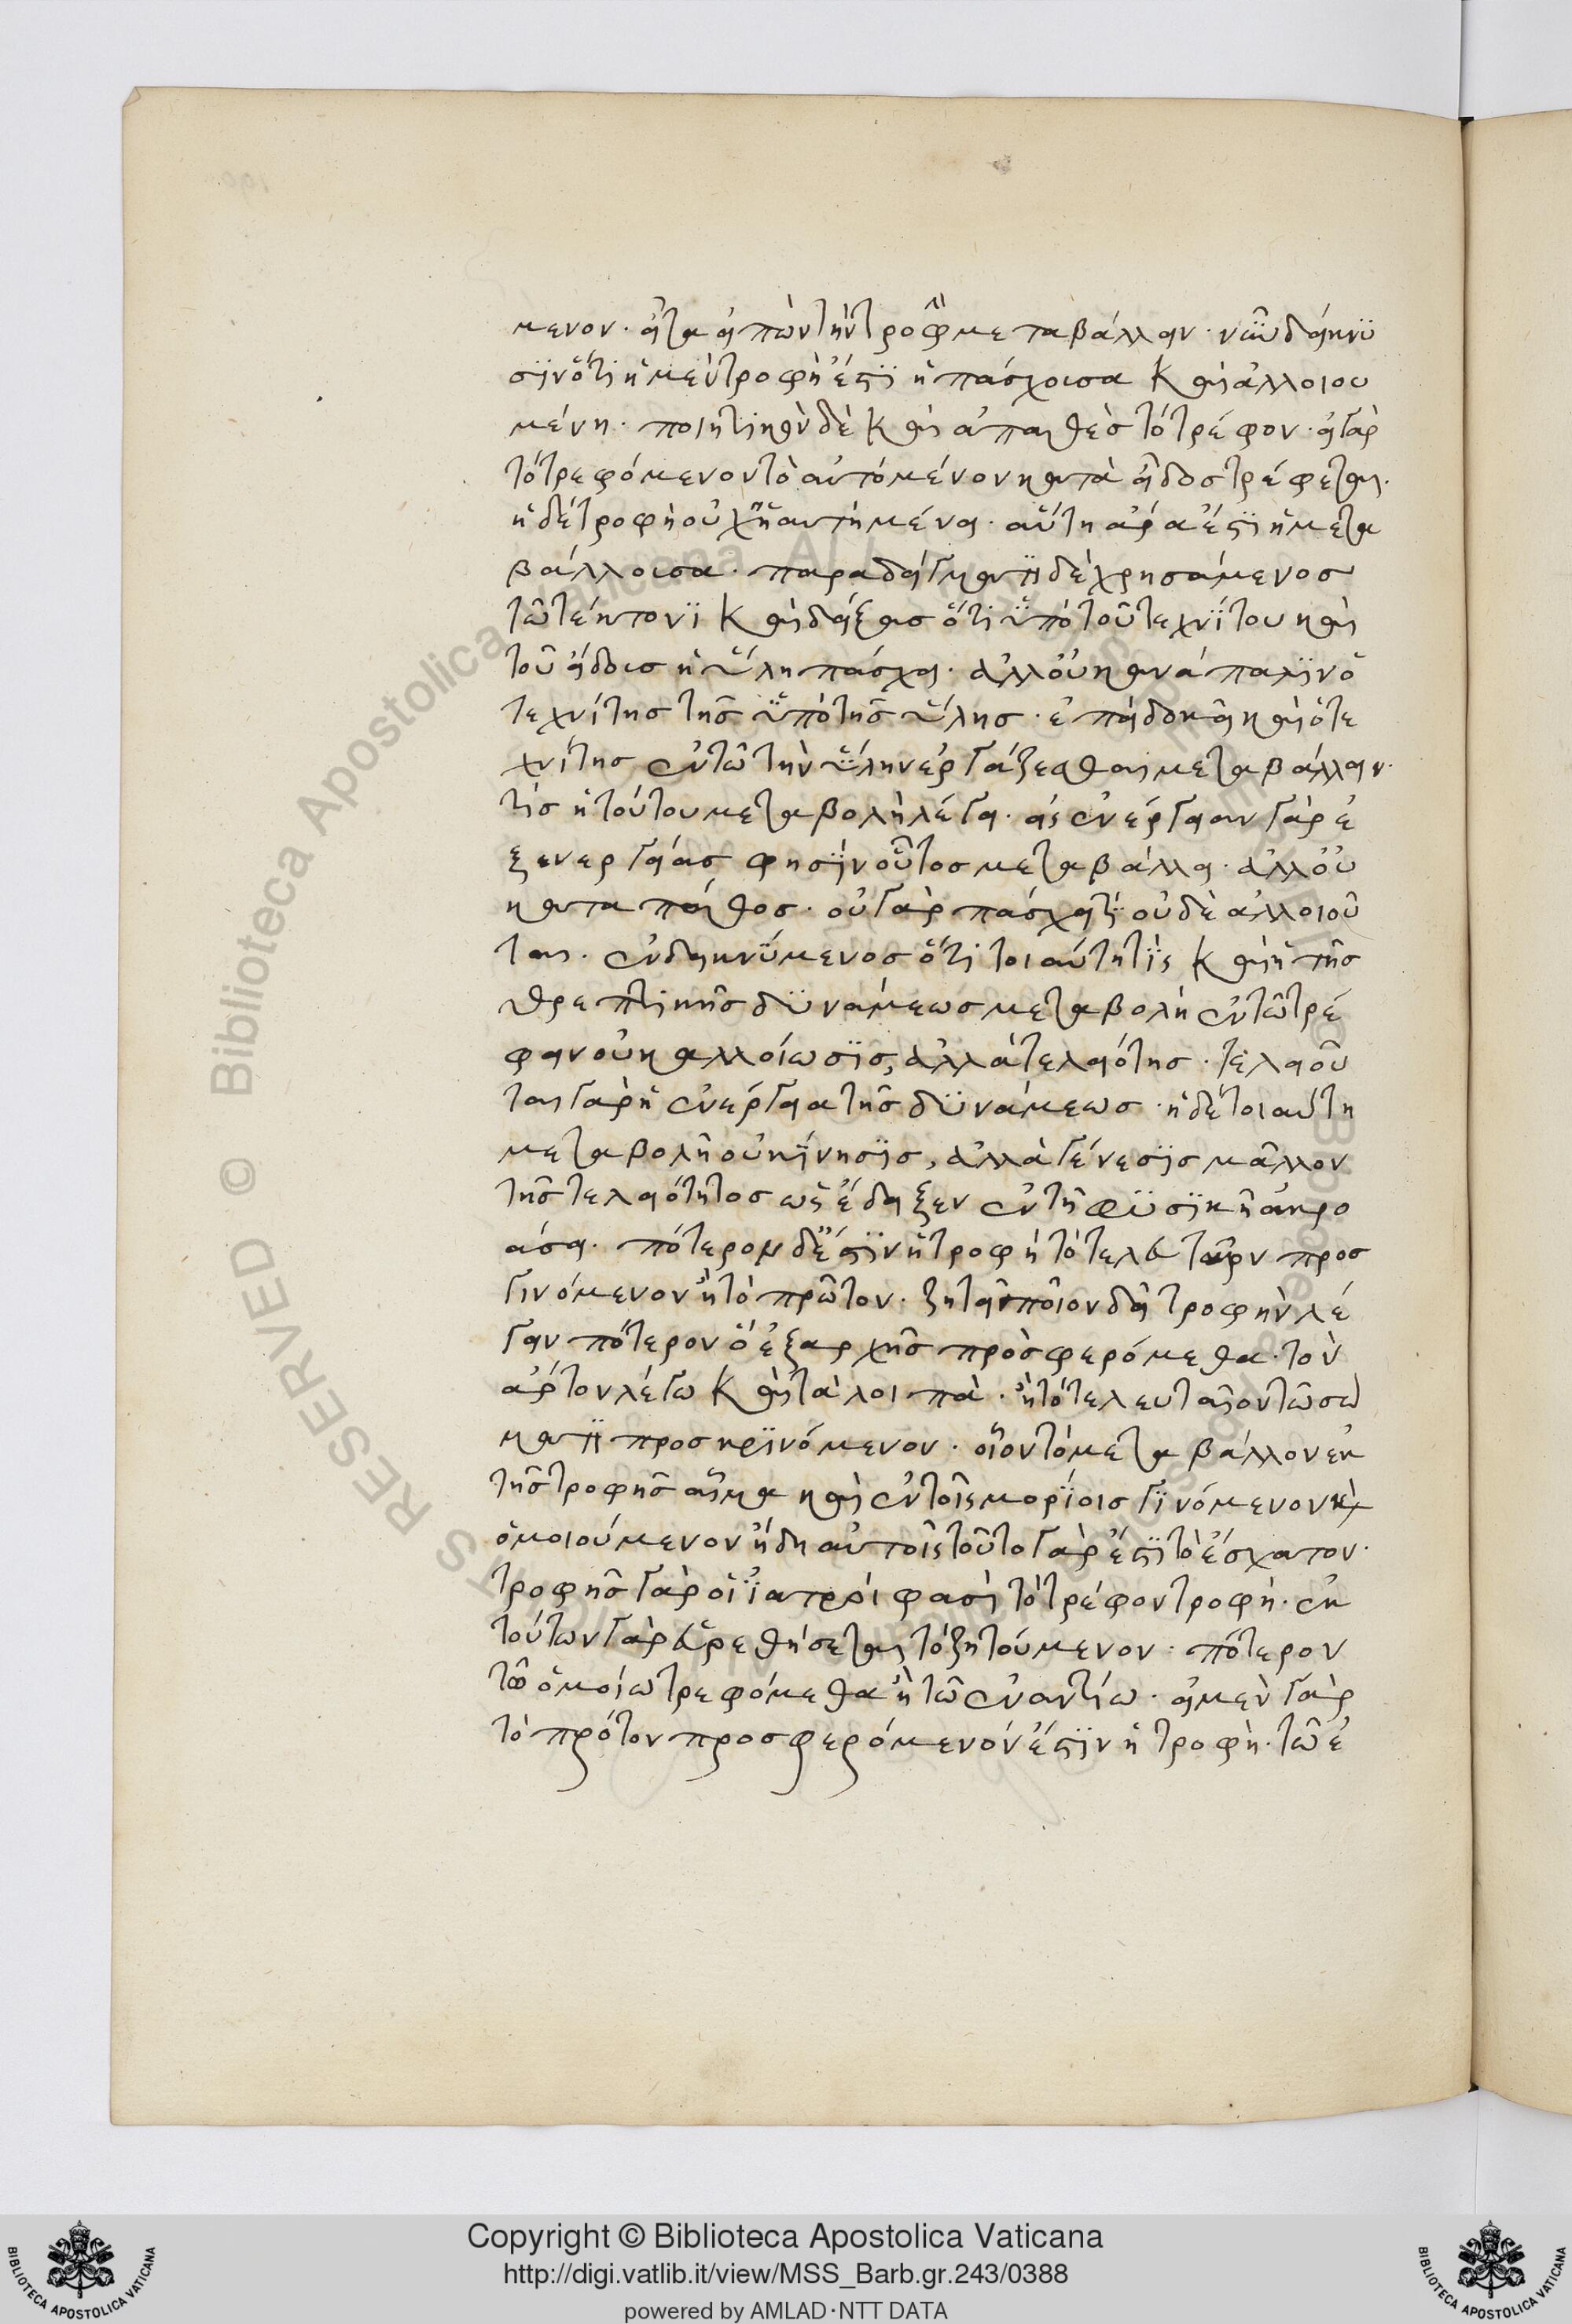 μενον. εἶτα εἰπὼν τὴν τροφὴν μεταβάλλειν. νῦν δείκνυ
σιν ὅτι ἡ μὲν τροφὴ ἐστὶ ἡ πάσχουσα καὶ ἀλλοιου
μένη. ποιητικὸν δὲ καὶ ἀπαθὲς τὸ τρέφον. εἰ γὰρ
τὸ τρεφόμενον τὸ αὐτὸ μένον κατὰ εἶδος τρέφεται.
ἡ δὲ τροφὴ οὐχ ἡ αὐτὴ μένει. αὕτη ἄρα ἐστὶ ἡ μετα
βάλλουσα. παραδείγματι δὲ χρησάμενος
τῶ τέκτονι καὶ δείξας ὅτι ὑπὸ τοῦ τεχνίτου καὶ
τοῦ εἴδους ἡ ὕλη πάσχει. ἀλλ' οὐκ ἀνάπαλιν ὁ
τεχνίτης τῆς ὑπὸ τῆς ὕλης. ἐπεὶ δοκεῖ καὶ ὁ τε
χνίτης ἐν τῶ τὴν ὕλην ἐργάζεσθαι μεταβάλλειν.
τίς ἡ τούτου μεταβολὴ λέγει. εἰς ἐνέργειαν γὰρ ἐ
ξ ἐνεργείας φησὶν οὗτος μεταβάλλει. ἀλλ' οὐ
κατα πάθος. οὐ γὰρ πάσχει τι οὐδὲ ἀλλοιοῦ
ται. ἐνδεικνύμενος ὅτι τοιαύτη τὶς καὶ ἡ τῆς
θρεπτικῆς δυνάμεως μεταβολὴ ἐν τῶ τρέ
φειν οὐκ ἀλλοίωσις, ἀλλὰ τελειότης. τελειοῦ
ται γὰρ ἡ ἐνέργεια τῆς δυνάμεως. ἡ δὲ τοιαύτη
μεταβολὴ οὐ κίνησις, ἀλλὰ γένεσις μᾶλλον
τῆς τελειότητος ὡς ἔδειξεν ἐν τῆ φυσικῆ ἀκρο
άσει. πότερον δ' ἐστὶν ἡ τροφὴ τὸ τελευταῖον προσ
γινόμενον ἢ τὸ πρῶτον. ζητεῖ ποῖον δεῖ τροφὴν λέ
γειν πότερον ὃ ἐξ ἀρχῆς προσφερόμεθα. τὸν
ἄρτον λέγω καὶ τὰ λοιπὰ. ἢ τὸ τελευταῖον τῶ σώ
ματι προσκρινόμενον. οἷον τὸ μεταβάλλον ἐκ
τῆς τροφῆς αἷμα καὶ ἐν τοῖς μορίοις γινόμενον καὶ
ὁμοιούμενον ἤδη αὐτοῖς τοῦτο γὰρ ἐστὶ τὸ ἔσχατον.
τροφῆς γὰρ οἱ ἰατροὶ φασὶ τὸ τρέφον τροφή. ἐκ
τούτων γὰρ εὑρεθήσεται τὸ ζητούμενον. πότερον
τῶ ὁμοίω τρεφόμεθα ἢ τῶ ἐναντίω. εἰ μὲν γὰρ
τὸ πρότον προσφερόμενόν ἐστὶν ἡ τροφὴ. τῶ ἐ
Copyright © Biblioteca Apostolica Vaticana
http://digi.vatlib.it/view/MSS_Barb.gr.243/0388
powered by AMLAD·NTT DATA